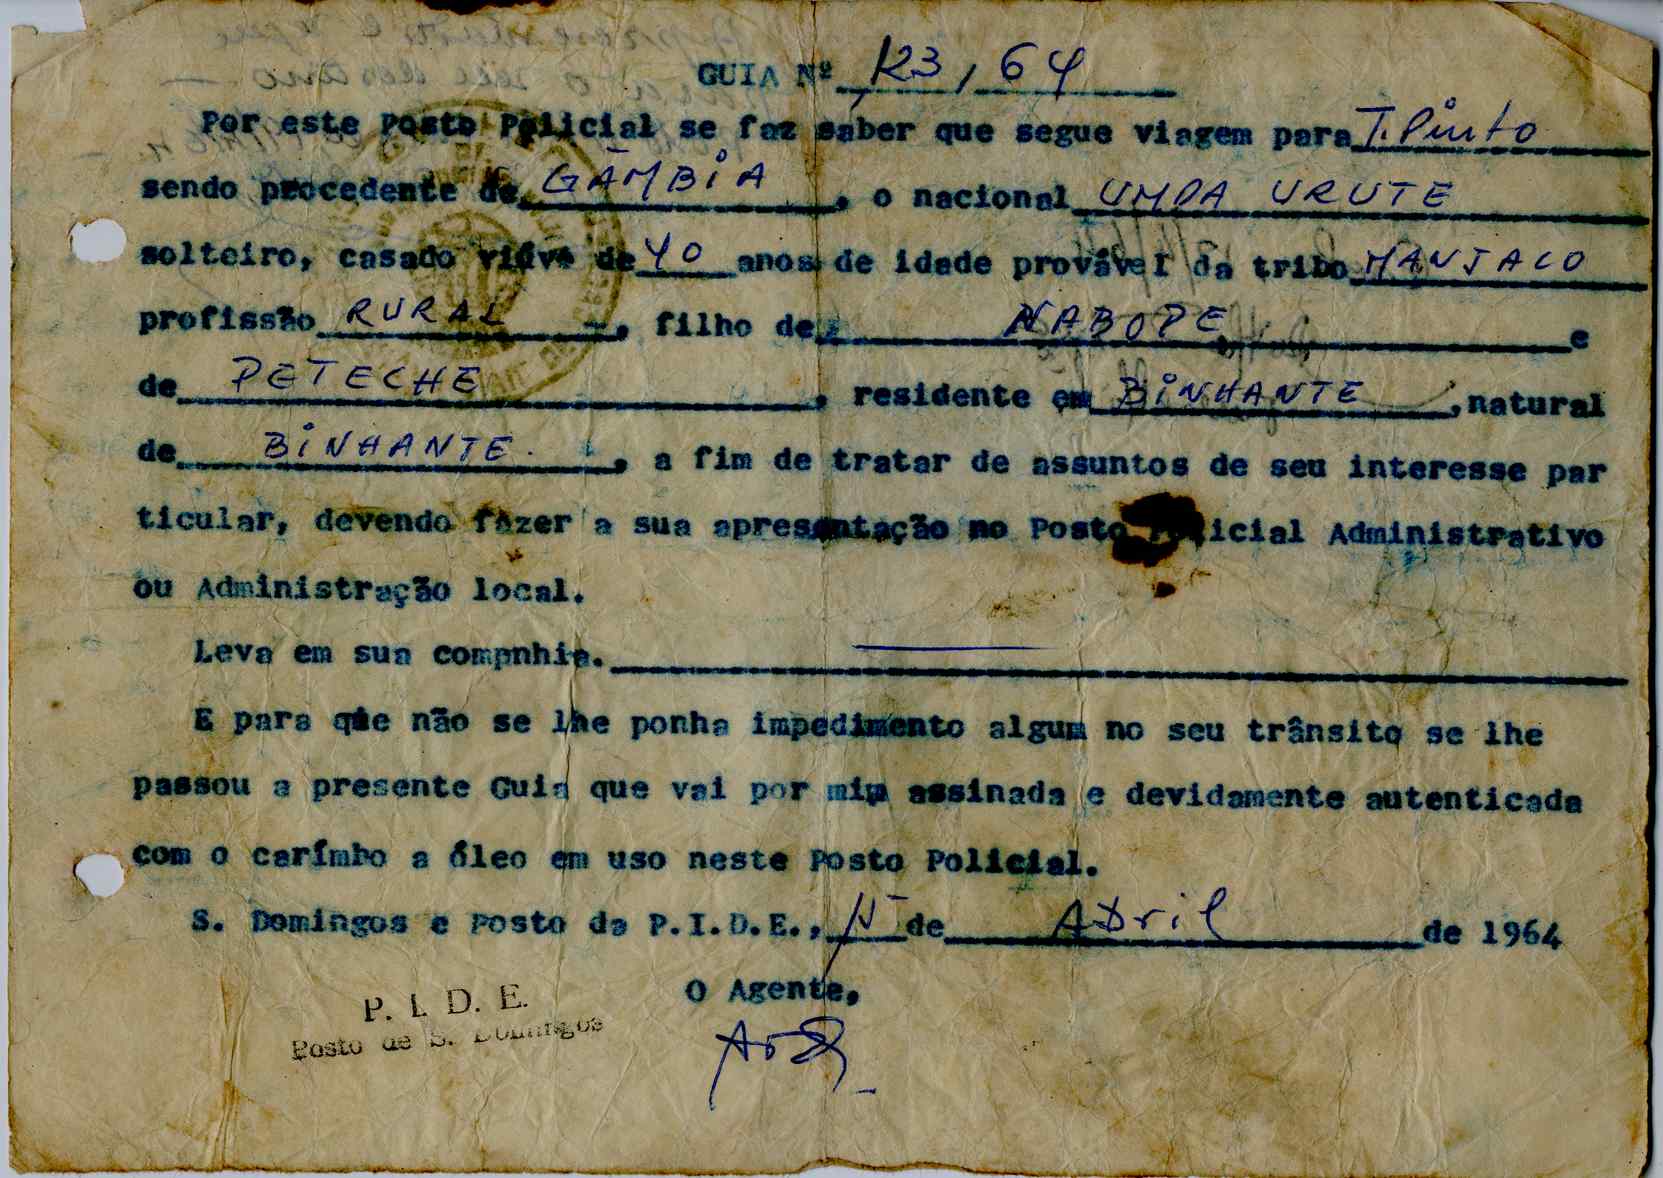 GUIA Nº 123, 64
Por este Posto Policial se faz saber que segue viagem para T. Pinto
sendo procedente de GÂMBIA, o nacional UMPA URUTE
solteiro, casado viúvo de 40 anos de idade provável da tribo MANJACO
profissão RURAL -, filho de NABOPE e
de PETECHE, residente em BINHANTE, natural
de BINHANTE., a fim de tratar de assuntos de seu interesse par
ticular, devendo fazer a sua apresentação no Posto Policial Administrativo
ou Administração local.
Leva em sua compnhia.
E para que não se lhe ponha impedimento algum no seu trânsito se lhe
passou a presente Guia que vai por mim assinada e devidamente autenticada
com o carímbo a óleo em uso neste Posto Policial.
S. Domingos e Posto da P.I.D.E., de Abril de 1964
O Agente,
P. I. D. E.
Posto de S. Domingos